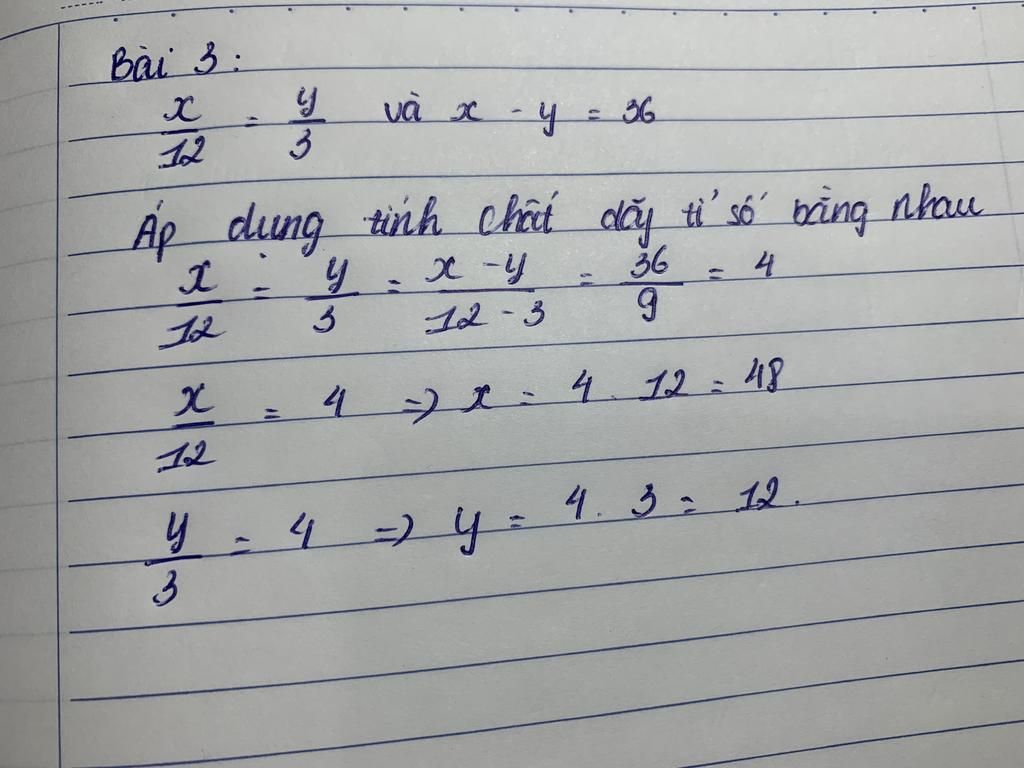 Bài 3:
x/12 = y/3 và x - y = 36
Áp dụng tính chất dãy tỉ số bằng nhau
x/12 = y/3 = (x - y)/(12 - 3) = 36/9 = 4
x/12 = 4 => x = 4 . 12 = 48
y/3 = 4 => y = 4 . 3 = 12.